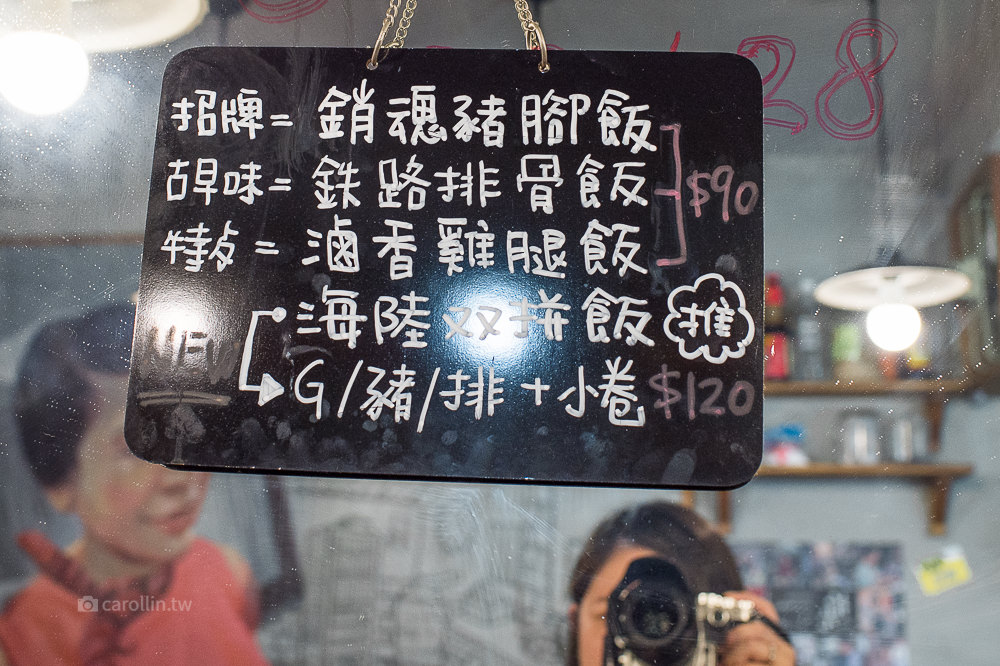 28
招牌=銷魂豬腳飯
古早味=鉄路排骨飯
特点=滷香雞腿飯
$90
海陸双拼飯
推
NEW
G/豬/排+小卷 $120
carollin.tw